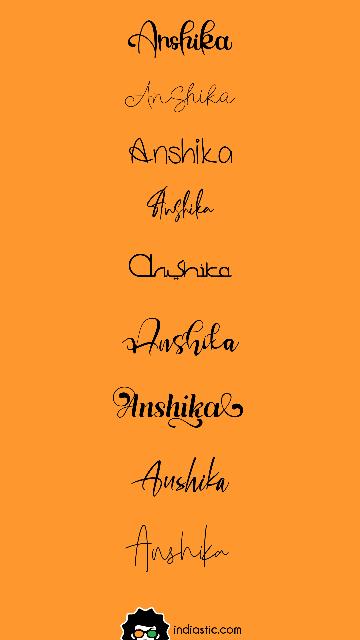 Anshika
Anshika
Anshika
Anshika
Anshika
Anshika
Anshika
Anshika
Anshika
indiastic.com